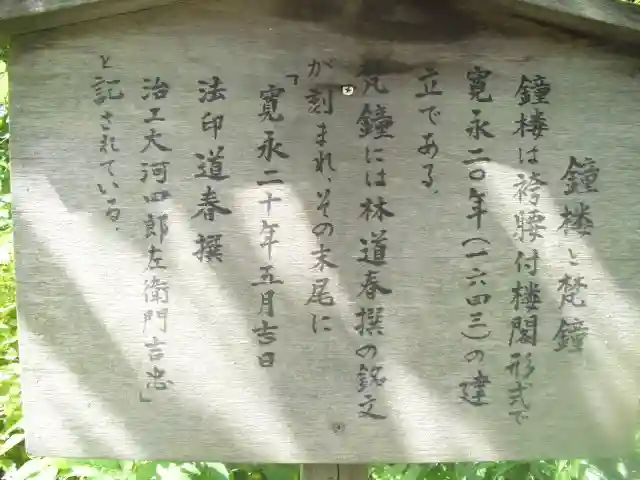 鐘楼と梵鐘
鐘楼は袴腰付楼閣形式で
寛永二〇年（一六四三）の建
立である。
梵鐘には林道春撰の銘文
が刻まれ、その末尾に
「寛永二十年五月吉日
法印道春撰
治工大河四郎左衛門吉忠」
と記されている。